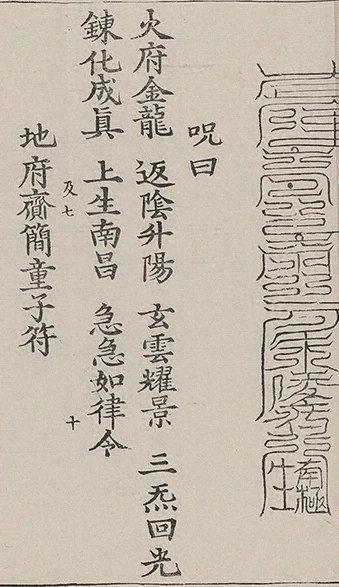 咒曰
火府金龍 返陰升陽 玄雲耀景 三炁回光
鍊化成眞 上生南昌 急急如律令
及七 十
地府齎簡童子符